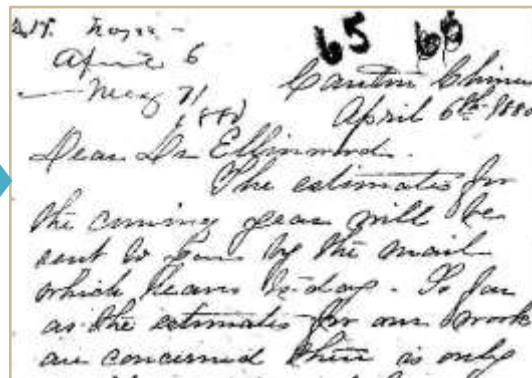 April 6
May 71
1880
65 66
Canton China
April 6th 1880
Dear Dr Ellinwood.
The estimates for
the coming year will be
sent to you by the mail
which leaves to-day. So far
as the estimates for our work
are concerned there is only